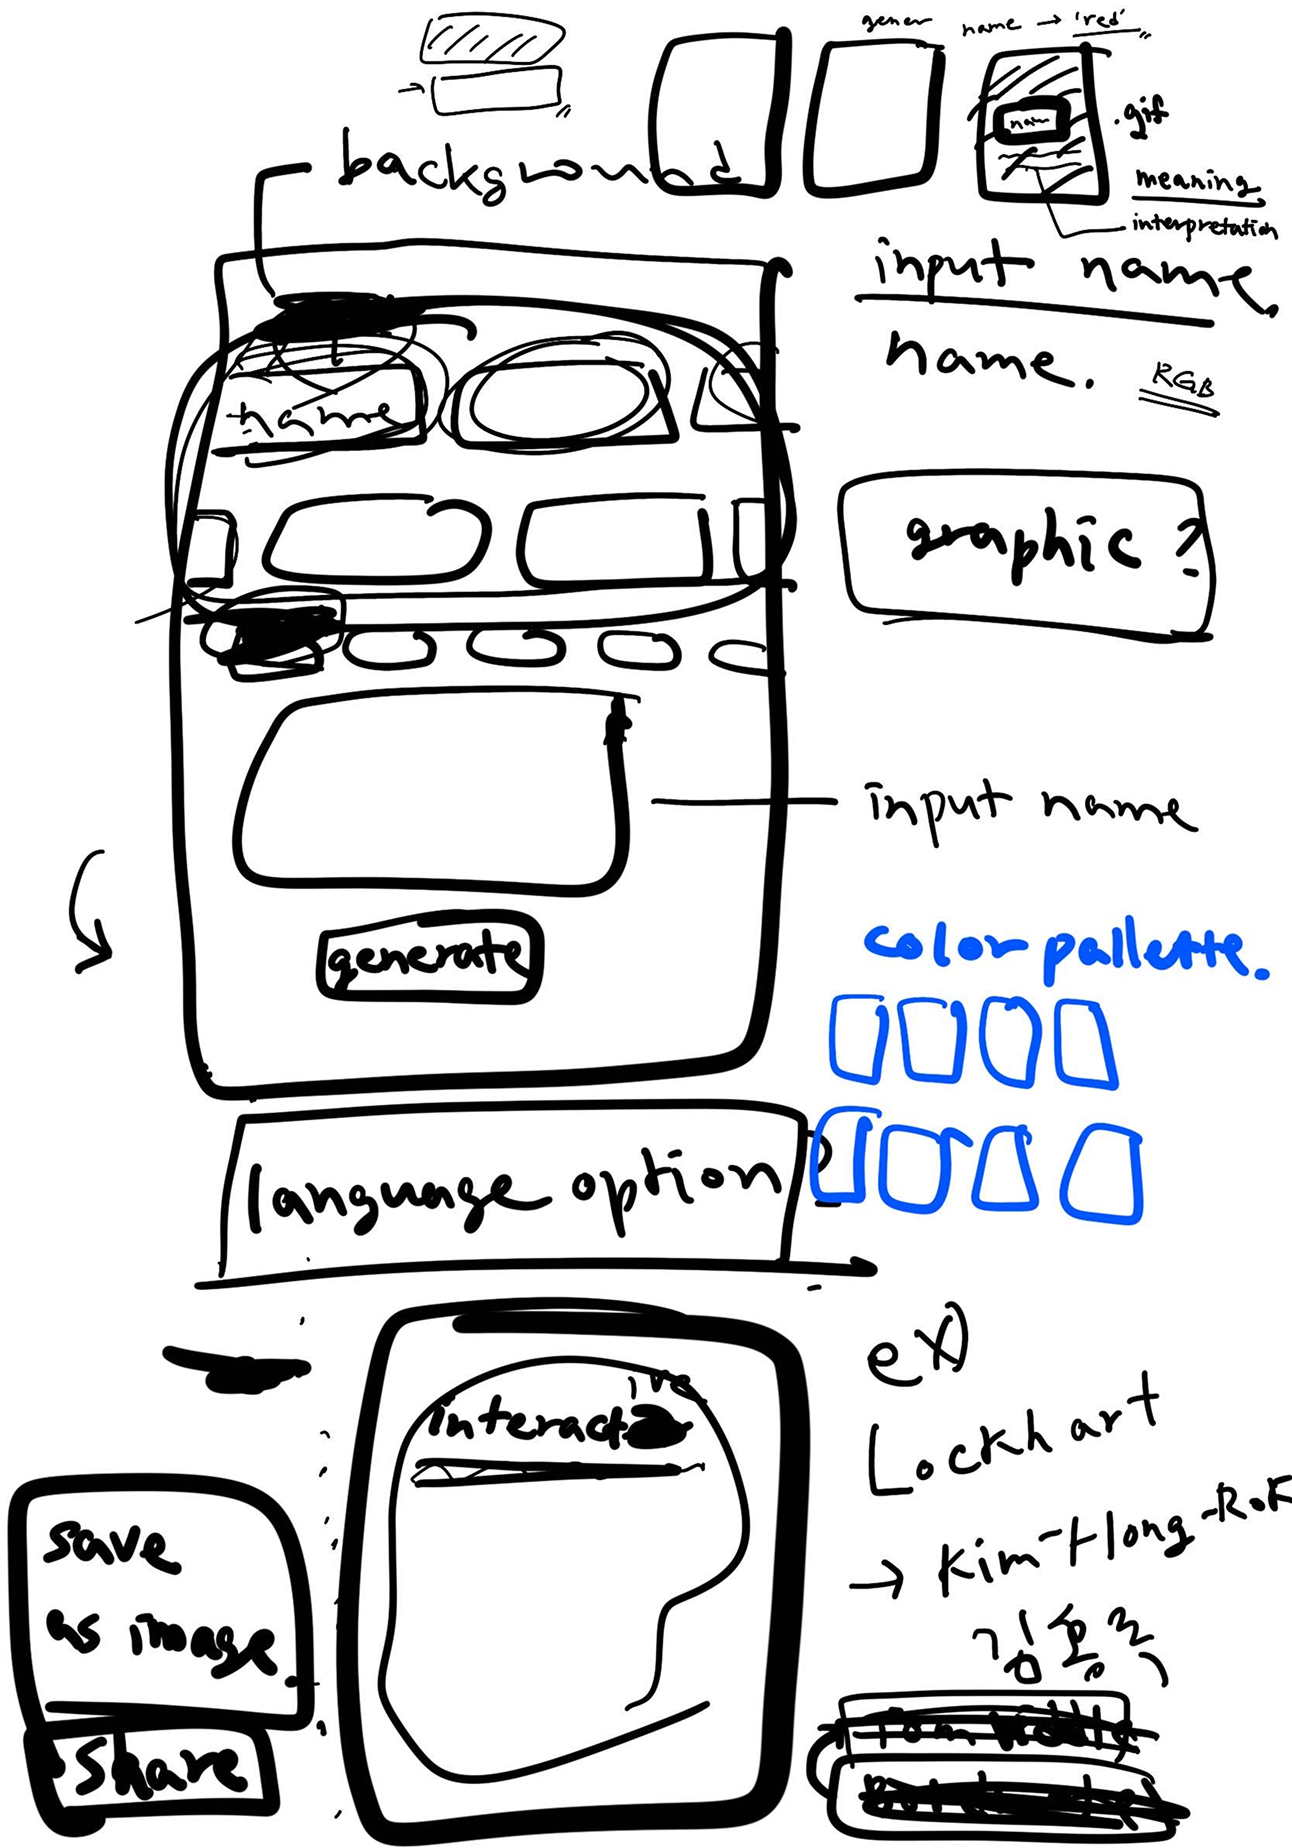 gener
name → 'red'
name
.gif
meaning
interpretation
background
input name.
name.
RGB
name
graphic ?
input name
generate
color pallette.
language option ?
interactive
ex)
Lockhart
→ Kim-Hong-Rok
김홍록
save
as image.
Share